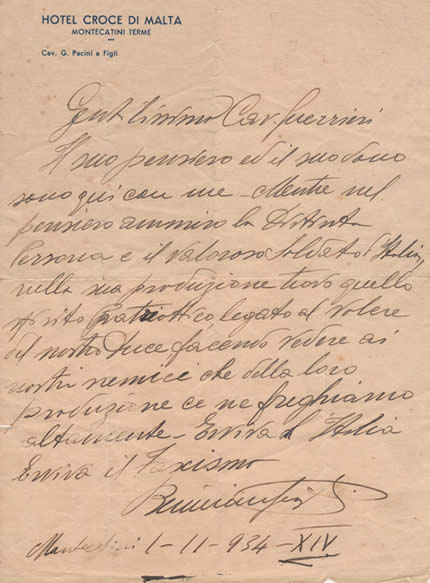 HOTEL CROCE DI MALTA
MONTECATINI TERME
Cav. G. Pacini e Figli
Gentilissimo Cav. Guerrieri
Il suo pensiero ed il suo dono
sono qui con me - Mentre nel
pensiero ammiro la Distinta
Persona e il valoroso Soldato d'Italia,
nella sua produzione trovo quello
spirito patriottico legato al volere
del nostro Duce facendo vedere ai
nostri nemici che della loro
produzione ce ne freghiamo
altamente - Evviva l'Italia
Evviva il Fascismo
Montecatini 1-11-934-XIV